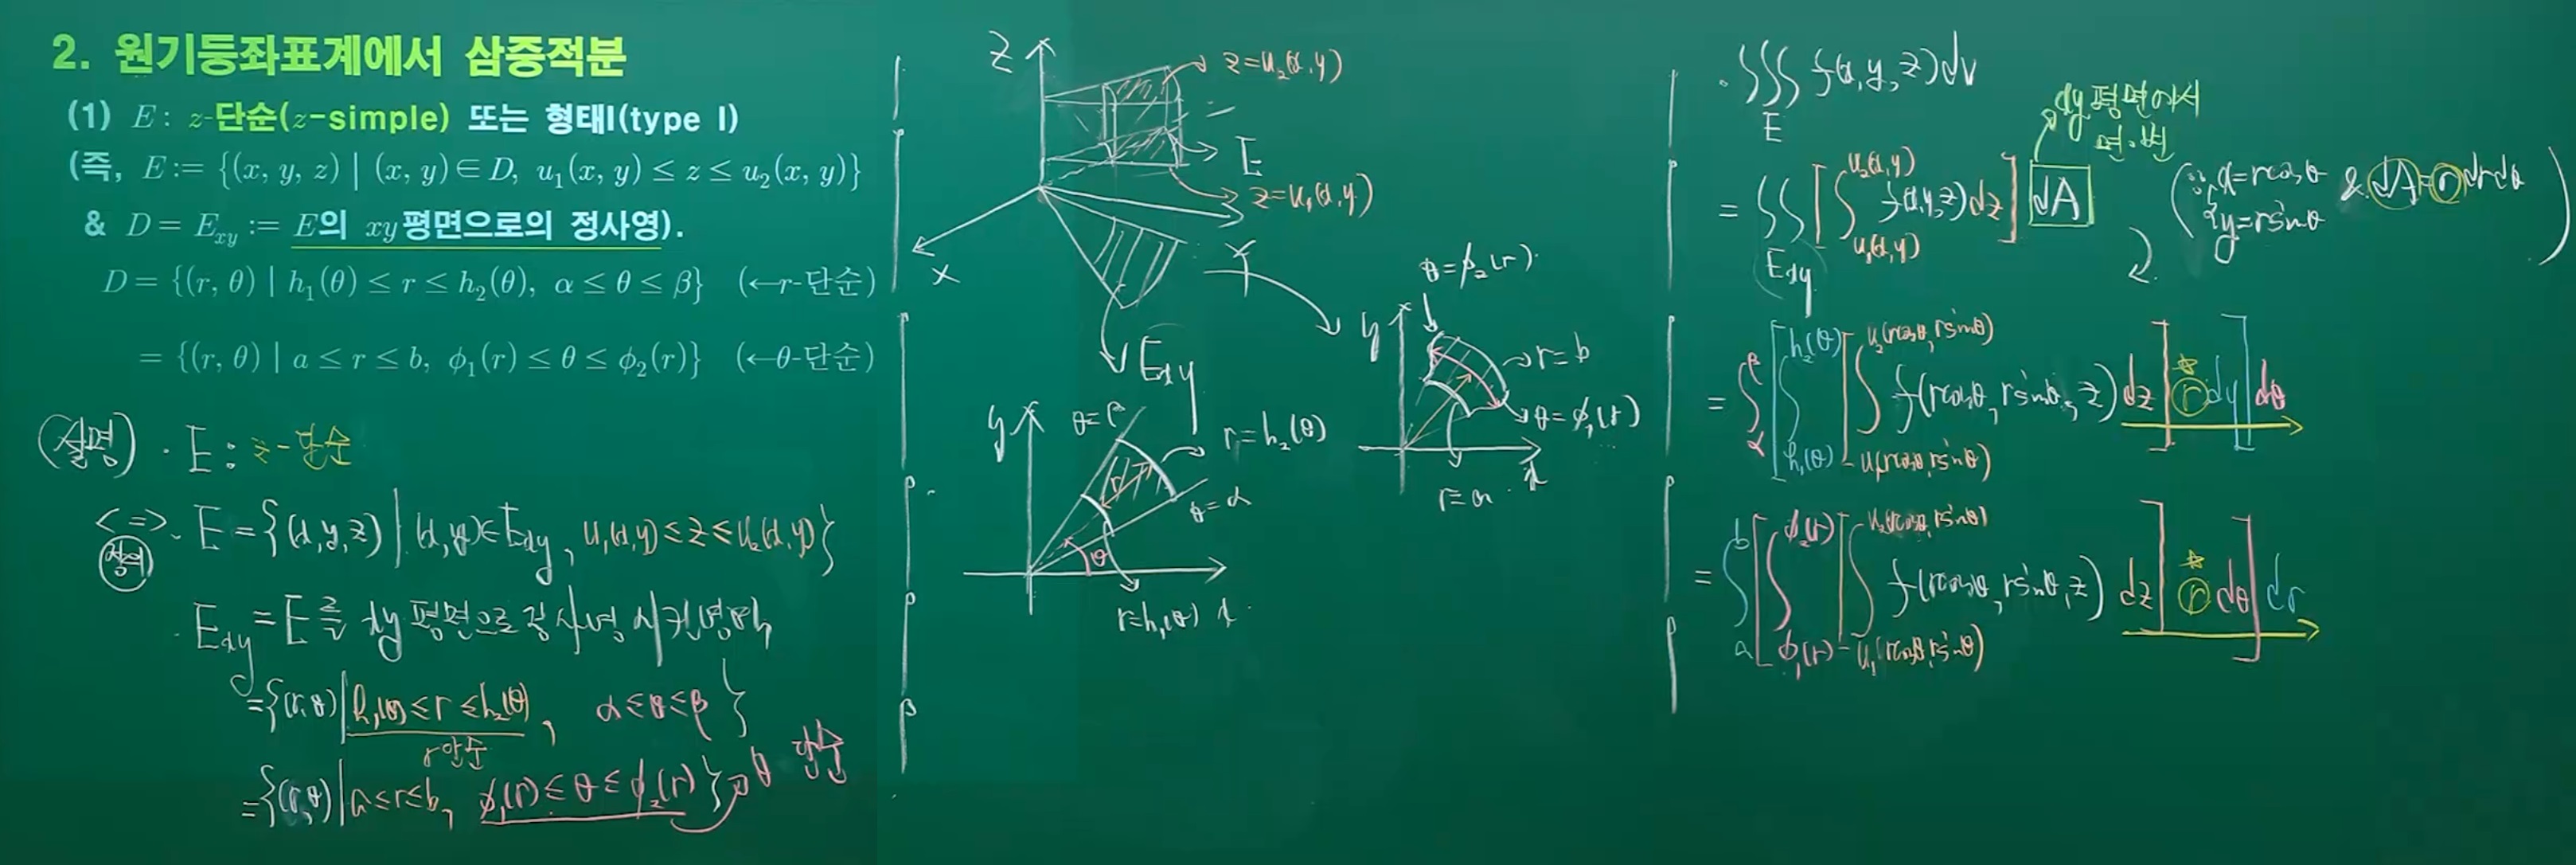 2. 원기둥좌표계에서 삼중적분
(1) E: z-단순(z-simple) 또는 형태I(type I)
(즉, E:= {(x, y, z) | (x, y)∈D, u₁(x, y) ≤ z ≤ u₂(x, y)}
& D = E_xy := E의 xy평면으로의 정사영).
D = {(r, θ) | h₁(θ) ≤ r ≤ h₂(θ), α ≤ θ ≤ β} (←r-단순)
= {(r, θ) | a ≤ r ≤ b, ϕ₁(r) ≤ θ ≤ ϕ₂(r)} (←θ-단순)
(설명) · E : z-단순
<=> · E = {(x,y,z) | (x,y)∈E_xy, u₁(x,y) ≤ z ≤ u₂(x,y)}
정의
· E_xy = E를 xy평면으로 정사영시킨영역
= {(r,θ) | h₁(θ) ≤ r ≤ h₂(θ), α ≤ θ ≤ β}
r단순
= {(r,θ) | a ≤ r ≤ b, ϕ₁(r) ≤ θ ≤ ϕ₂(r)} θ 단순
z
z=u₂(x,y)
E
z=u₁(x,y)
x
y
E_xy
y
θ=β
r=h₂(θ)
r
θ=α
θ
r=h₁(θ) x
θ=ϕ₂(r)
y
r=b
θ=ϕ₁(r)
r=a x
· ∭_E f(x,y,z)dv
xy평면에서
= ∬_E_xy [∫_u₁(x,y)^u₂(x,y) f(x,y,z)dz] dA (∵ {x=rcosθ y=rsinθ & dA=rdrdθ)
= ∫_α^β [∫_h₁(θ)^h₂(θ) [∫_u₁(rcosθ,rsinθ)^u₂(rcosθ,rsinθ) f(rcosθ,rsinθ,z)dz] r dr] dθ
= ∫_a^b [∫_ϕ₁(r)^ϕ₂(r) [∫_u₁(rcosθ,rsinθ)^u₂(rcosθ,rsinθ) f(rcosθ,rsinθ,z) dz] r dθ] dr